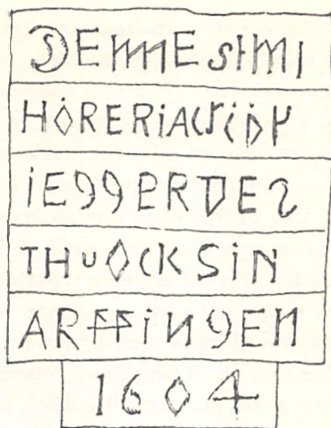 DENNE STIMI
HÖRER IACKIÖP
IEGGERDES
THUOCKSIN
ARFFINGEN
1604